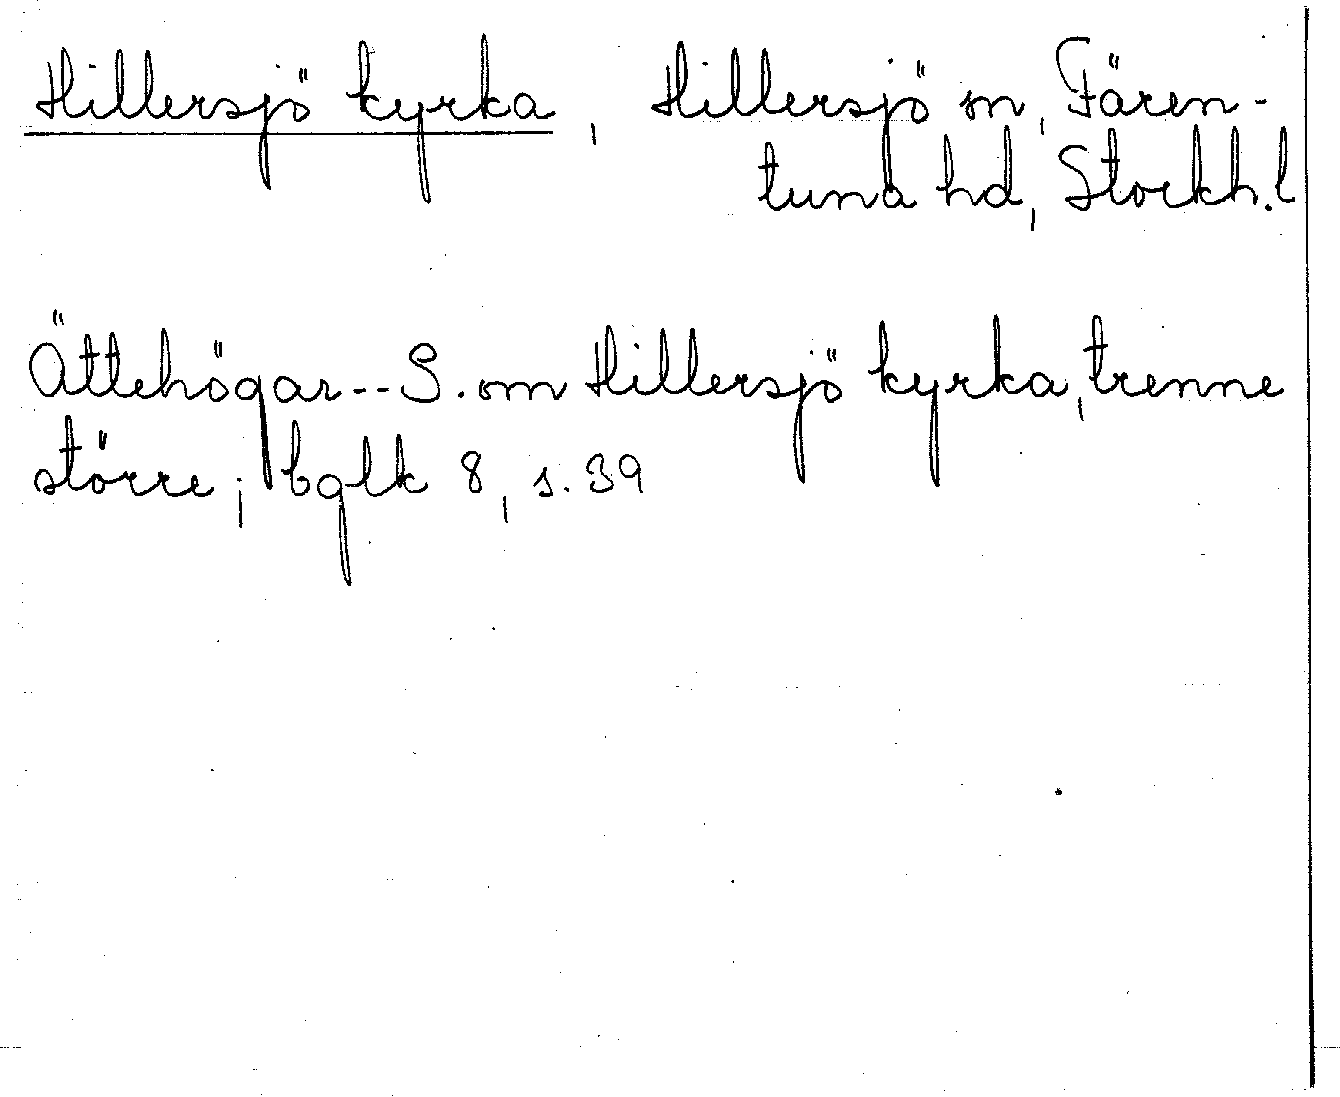 Hillersjö kyrka, Hillersjö sn, Fären-
tuna hd, Stockh.l
Ättehögar--S.om Hillersjö kyrka, trenne
större; bglk 8, s.39